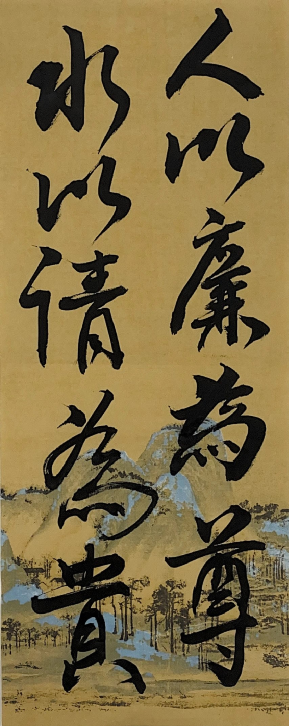 人以廉為尊
水以請為貴